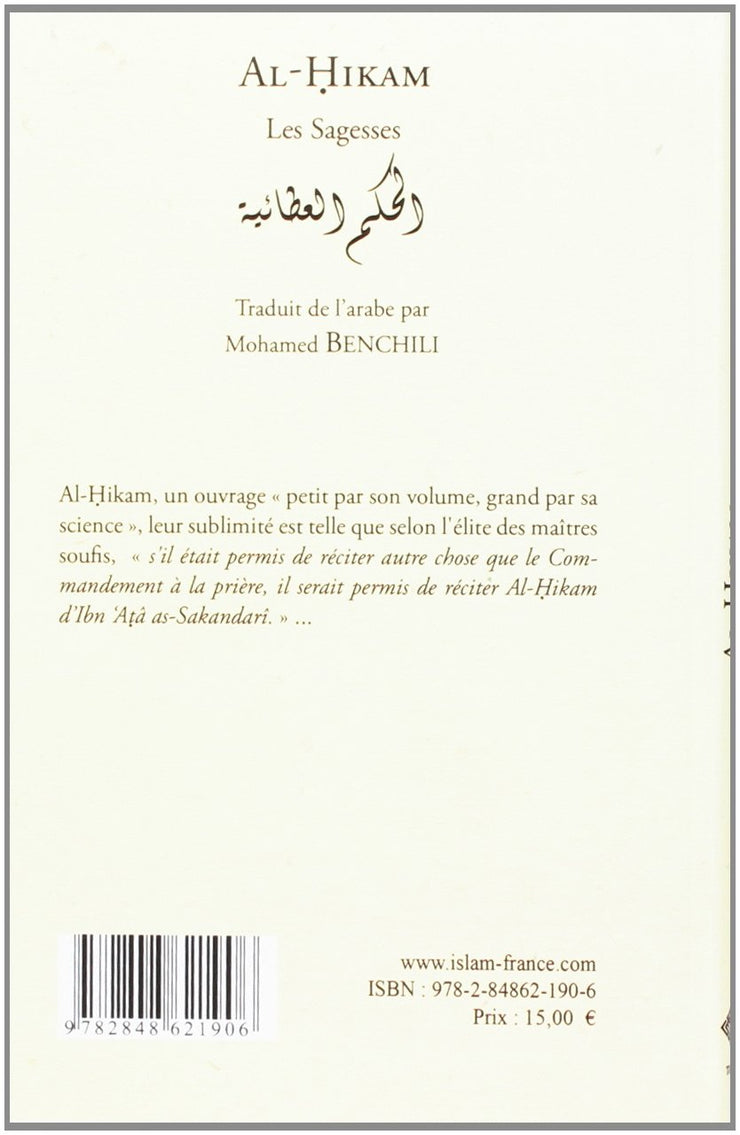 AL-ḤIKAM
Les Sagesses
الحكم العطائية
Traduit de l'arabe par
Mohamed BENCHILI
Al-Ḥikam, un ouvrage « petit par son volume, grand par sa
science », leur sublimité est telle que selon l'élite des maîtres
soufis, « s'il était permis de réciter autre chose que le Com-
mandement à la prière, il serait permis de réciter Al-Ḥikam
d'Ibn ‘Aṭâ as-Sakandarî. » ...
www.islam-france.com
ISBN : 978-2-84862-190-6
Prix : 15,00 €
9 782848 621906